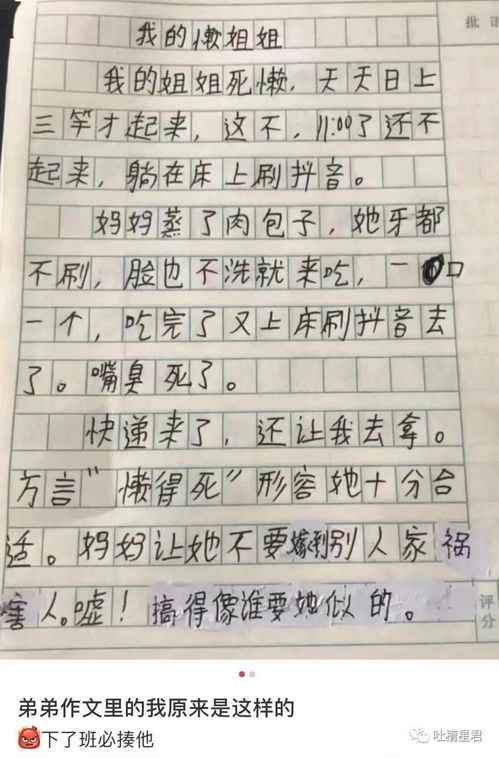 批语
我的懒姐姐
我的姐姐死懒，天天日上
三竿才起来，这不，11:00了还不
起来，躺在床上刷抖音。
妈妈蒸了肉包子，她牙都
不刷，脸也不洗就来吃，一口
一个，吃完了又上床刷抖音去
了。嘴臭死了。
快递来了，还让我去拿。
方言“懒得死”形容她十分合
适。妈妈让她不要嫁到别人家祸
害人。嘘！搞得像谁要她似的。
评分
弟弟作文里的我原来是这样的
下了班必揍他
吐槽星君